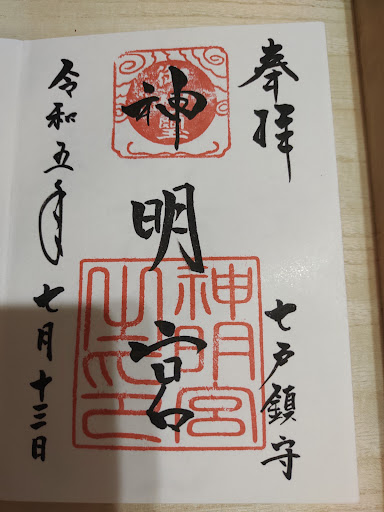 奉拝
七戸鎮守
神明宮
神明宮之印
令和五年七月十三日